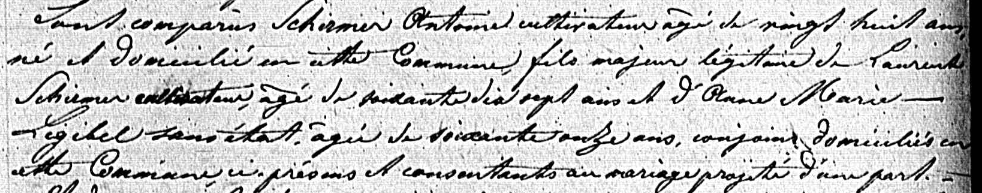 Sont comparus Schirmer Antoine cultivateur âgé de vingt huit ans,
né et domicilié en cette Commune, fils majeur légitime de Laurent
Schirmer cultivateur, âgé de soixante dix sept ans et d'Anne Marie —
Ligibel sans état, âgée de soixante onze ans, conjoints domiciliés en
cette Commune ici présens et consentants au mariage projeté d'une part. —